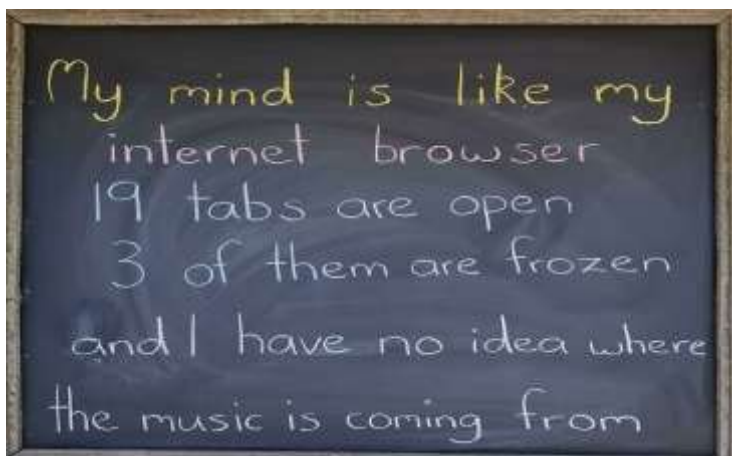 My mind is like my
internet browser
19 tabs are open
3 of them are frozen
and I have no idea where
the music is coming from